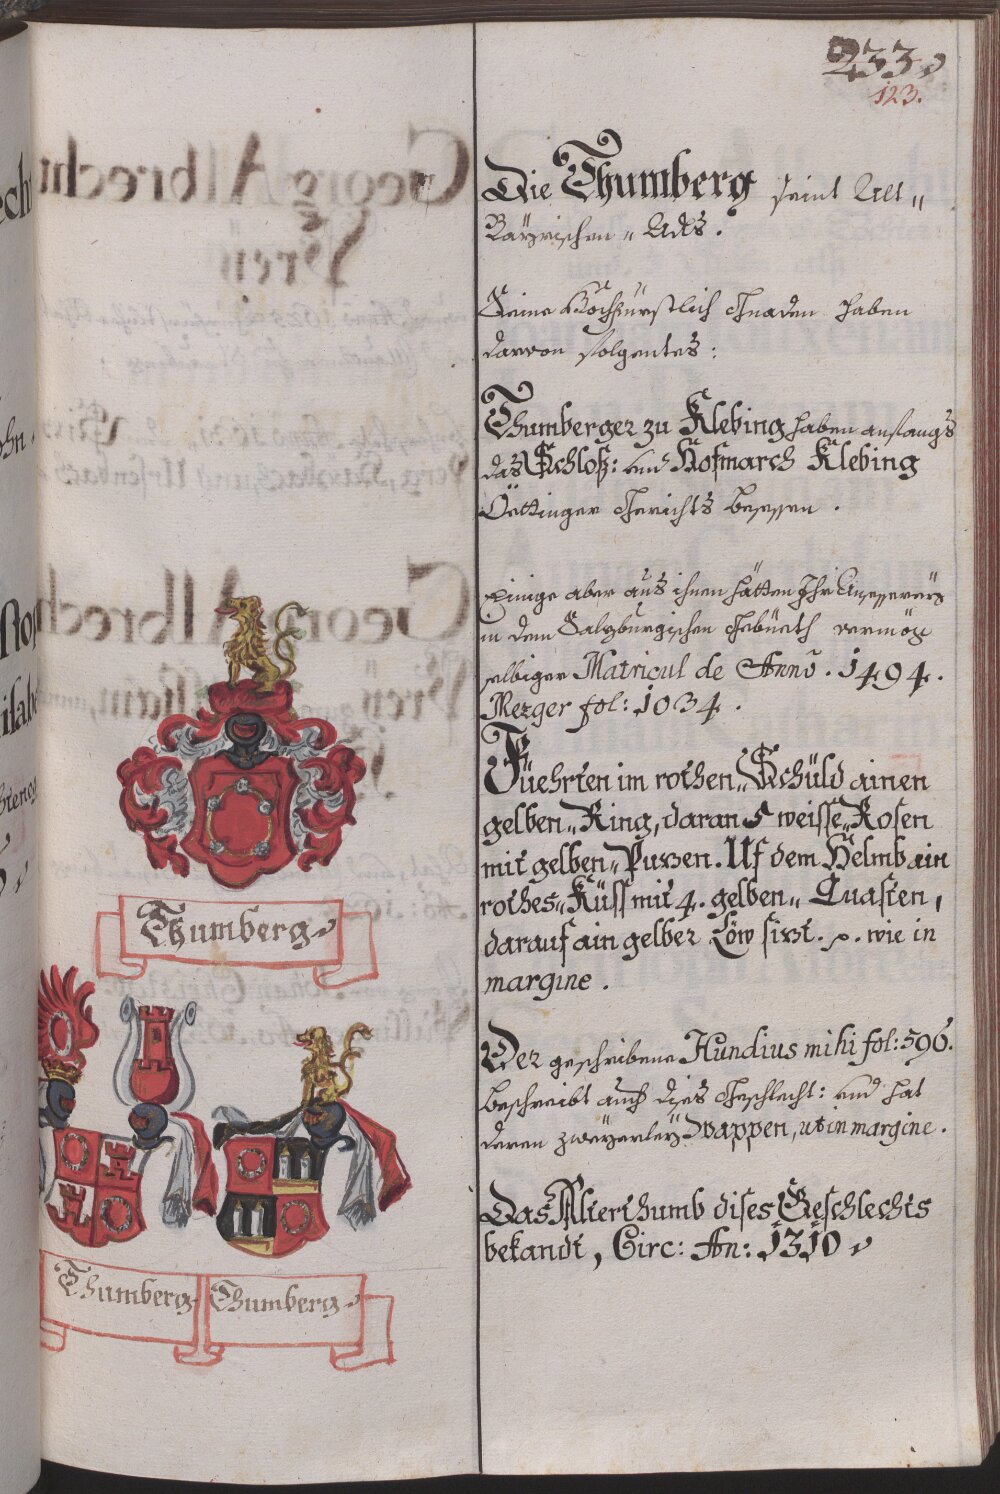 233
123.
Die Thumberg seint Alt„
Bäyrischen„ Adls.
Seine Hochfürstlich Gnaden haben
darvon folgentes:
Thumberger zu Klebing haben anfangs
das Schloß: und Hofmarch Klebing
Öettinger Gerichts besessen.
Einige aber aus ihnen hätten Ihr
in dem Salzburgischen Gebüeth vermög
selbiger Matricul de Anno. 1494.
Mezger fol: 1034.
Füehrten im rothen„ Schüld ainen
gelben„ Ring, daran 5 weisse„ Rosen
mit gelben„ Puzen. Uf dem Helmb ain
rothes„ Küss mit 4. gelben„ Quasten,
darauf ain gelber Löw sizt. p. wie in
margine.
Der geschribene Hundius mihi fol: 596.
beschreibt auch dises Geschlecht: und hat
deren zweyerley Wappen, ut in margine.
Das Alterthumb dises Geschlechts
bekandt, Circ: An: 1310
Thumberg
Thumberg
Thumberg